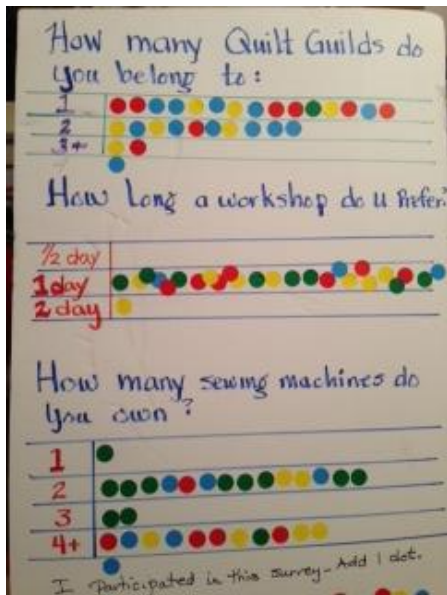 How many Quilt Guilds do
you belong to:
1
2
3+
How Long a workshop do u Prefer.
1/2 day
1 day
2 day
How many sewing machines do
you own?
1
2
3
4+
I Participated in this survey - Add 1 dot.